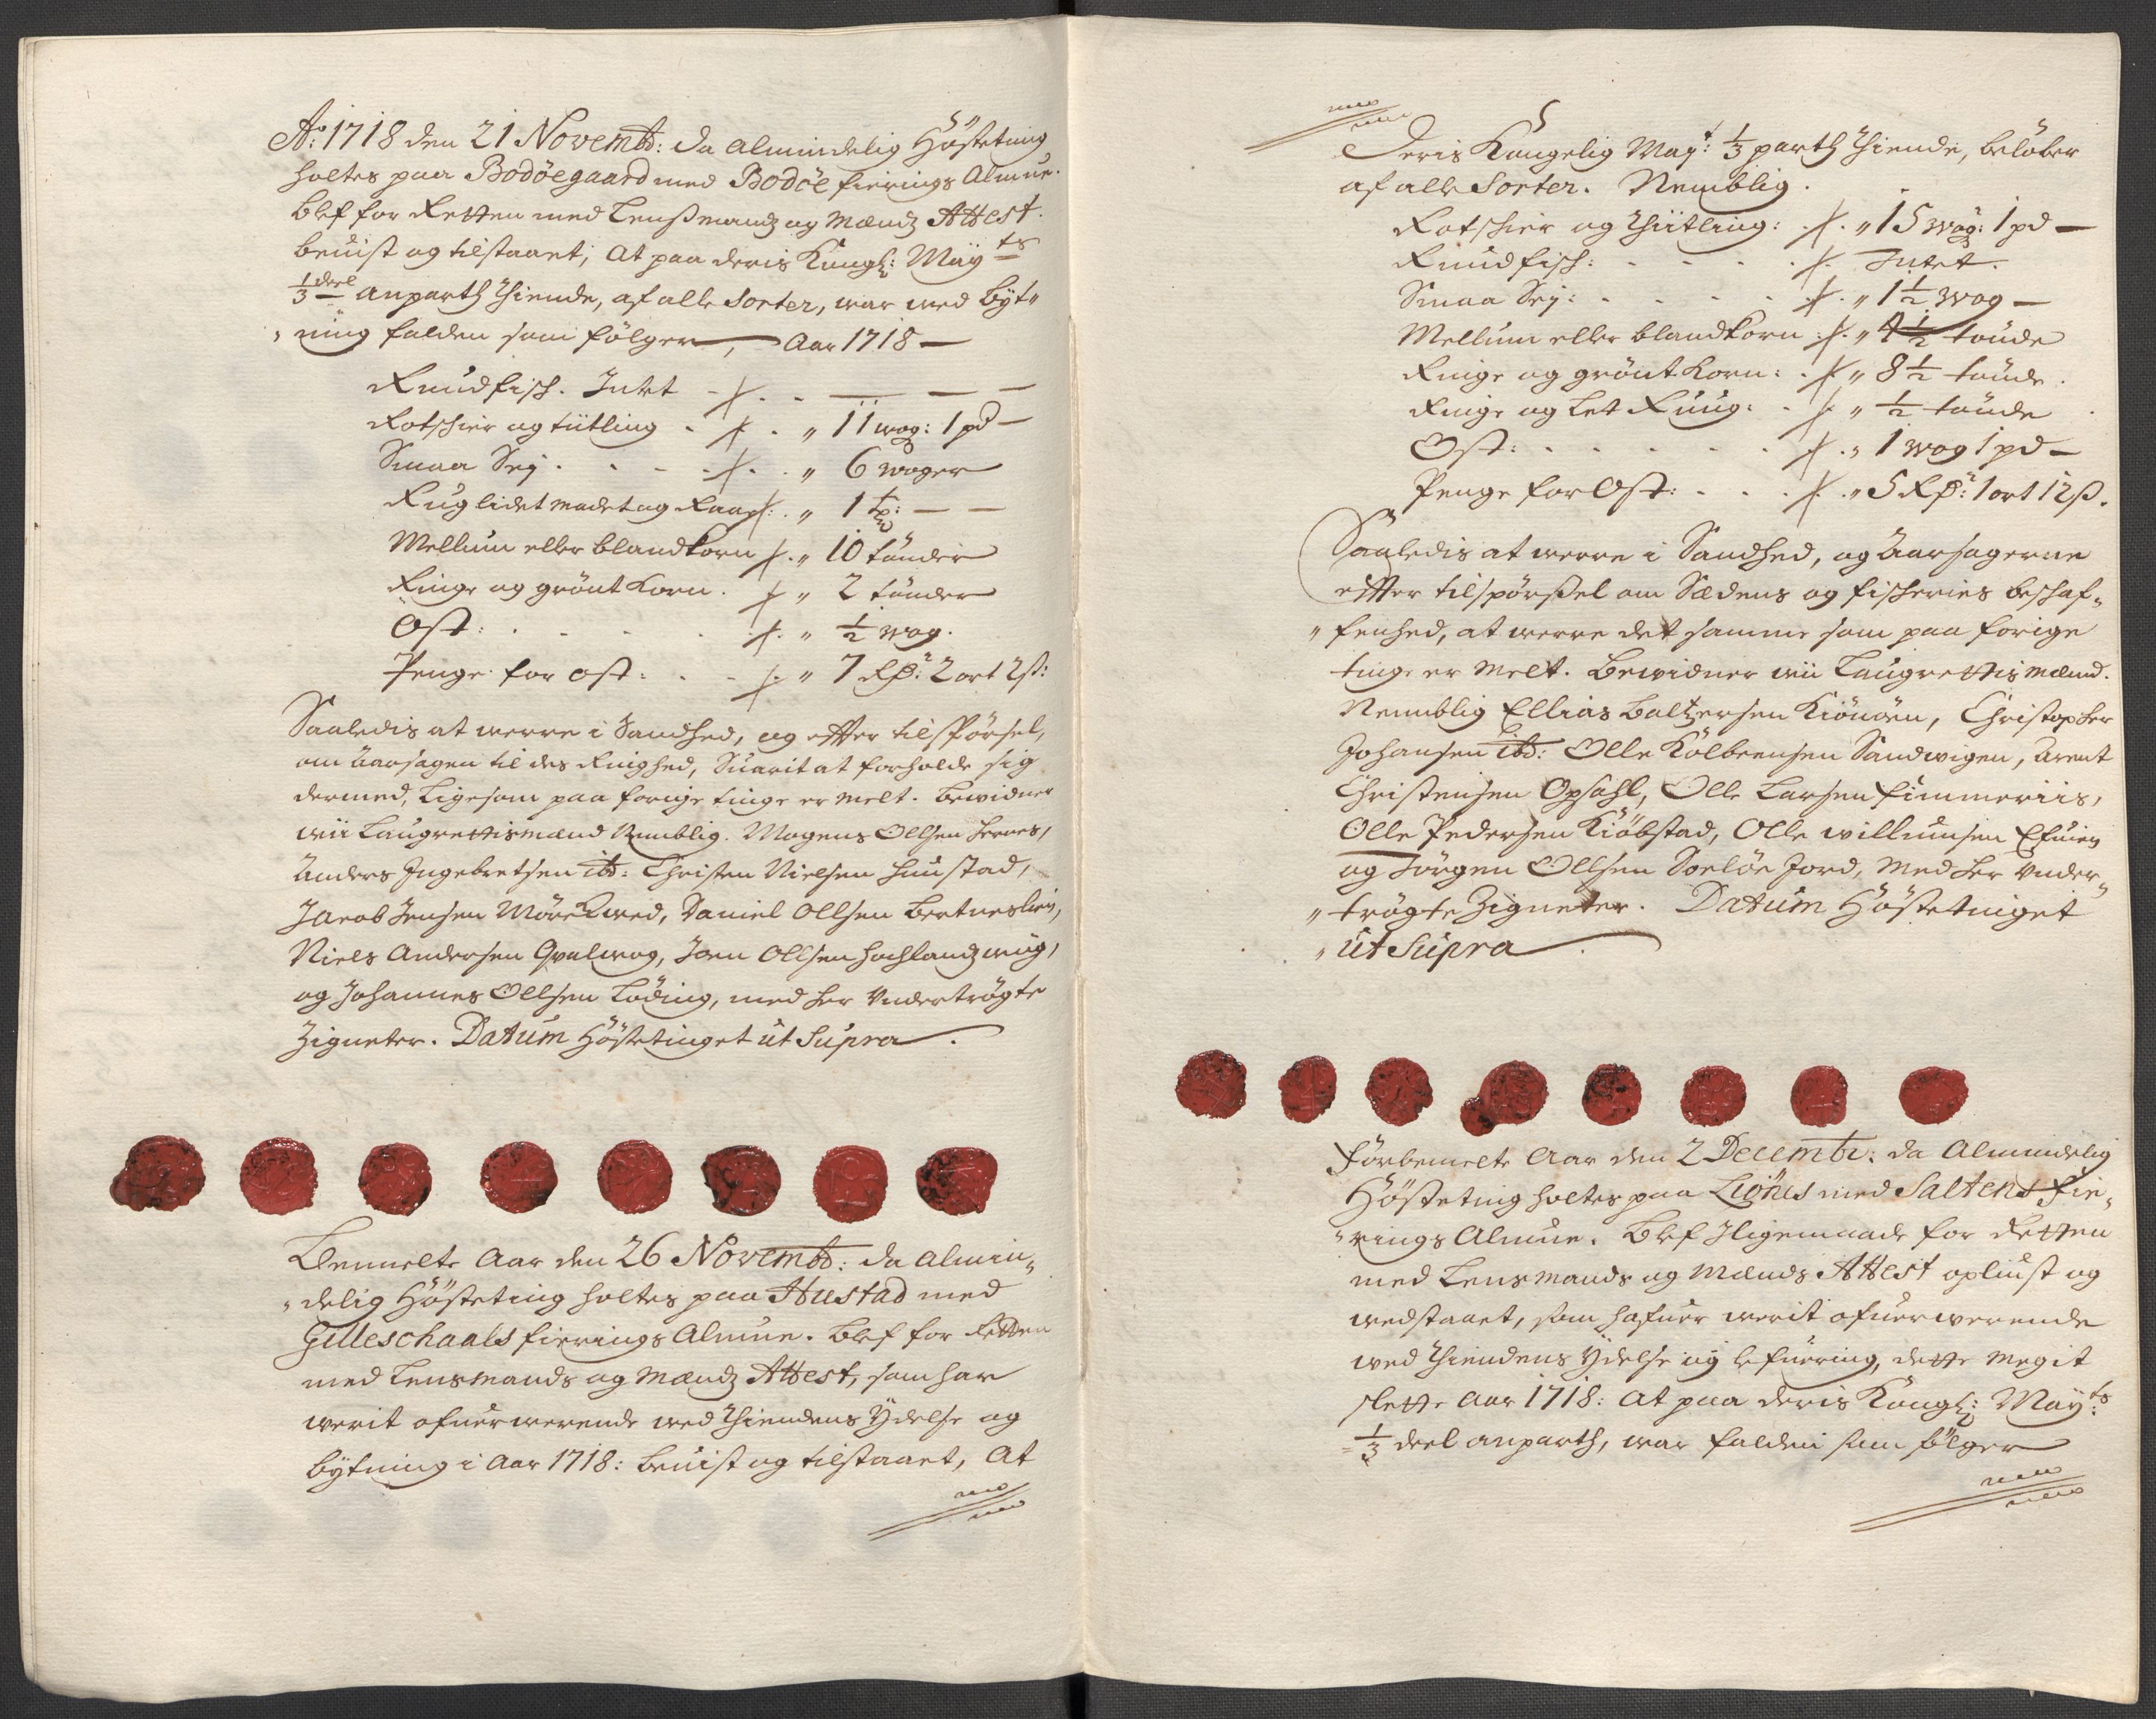 Ao: 1718 den 21 Novembr: da almindelig Hösteting
holtes paa Bodöegaard med Bodöe fierings Almue.
blef for Retten med Lenßmandz og Mændz Attest
beuist og tilstaaet, at paa deris Kongl: Mayts
1/3 deel anparth Thiende, af alle Sorter, war wed byt„
„ning falden som fölger, Aar 1718 —
Rundfisch. Intet -//. - — — —
Rotschier og tiitling - //. „ 11 wog: 1 pd —
Smaa Seÿ . - - - //. „ 6 woger
Rug lidet madet og Raa //: „ 1 tp: — —
Mellum eller blandkorn //. „ 10 tönder
Ringe og grönt Korn. // „ 2 tönder
Ost: . - - - //. „ 1/2 wog.
Penge for ost: - - // „ 7 Rdr: 2 ort 2 ß:
Saaledis at werre i Sandhed, og efter tilspörsel,
om Aarsagen til des Ringhed, Suarit at forholde sig
dermed, ligesom paa forige tinge er melt. Bewidner
wii Laugrettismænd Nemblig. Mogens Ollsen Hernes,
Anders Ingebretsen ibd: Christen Nielsen Hunstad,
Jacob Jensen Mörckwed, Daniel Ollsen Bertneslien,
Niels Andersen Qvalwog, Joen Ollsen Hochlandzwiig,
og Johannes Ollsen Löding, med her Undertrögte
Zigneter. Datum Höstetinget ut Supra.
Bemelte Aar den 26 Novembr: da Almin„
„delig Hösteting holtes paa Hustad med
Gilleschaals fierings Almue. blef for Retten
med Lensmands og Mændz Attest, som har
werit ofuerwerende wed Thiendens Ÿdelse og
bytning i Aar 1718: beuist og tilstaaet, At
Deris Kongelig Mayt: 1/3 parth Thiende, belöber
af alle Sorter. Nemblig.
Rotschier og Thiitling: //. „ 15 wog: 1 pd —
Rundfisch: - - - - //. Intet.
Smaa Seÿ: - - - - //. „ 1 1/2 wog —
Mellum eller blandkorn: //. „ 4 1/2 tönde
Ringe og grönt Korn: //. „ 8 1/2 tönde.
Ringe og let Ruug: - // „ 1/2 tönde
Ost: . - - - - //. „ 1 wog 1 pd —
Penge for Ost: - - - //. „ 5 Rdr: 1 ort 12 ß.
Saaledis at werre i Sandhed, og Aarsagerne
efter tilspörßel om Sædens og fischeries beschaf„
„fenhed, at werre det samme som paa forige
tinge er melt. Bewidner wii Laugrettismænd.
Nemblig Ellias Baltzersen Kiönöen, Christopher
Johansen ibd: Olle Kolbeensen Sandwigen, Arent
Christensen Opsahl, Olle Larsen fimmeriis,
Olle Pedersen Kiöbstad, Olle willumsen
og Jörgen Ollsen Soelöe Jord, Med her Under„
„trögte Zigneter. Datum Höstetinget
„ut Supra
Förbemelte Aar den 2 Decembr: da Almindelig
Hösteting holtes paa Liönes med Saltens fie„
„rings Almue. Blef Iligemaade for Retten
med Lensmands og Mænds Attest opliust og
wedstaaet, som hafuer werit ofuerwerende
wed Thiendens Ÿdelse og lefuering, dette megit
slette Aar 1718: At paa deris Kongl: Mayts:
1/3 deel anparth, war falden som fölger